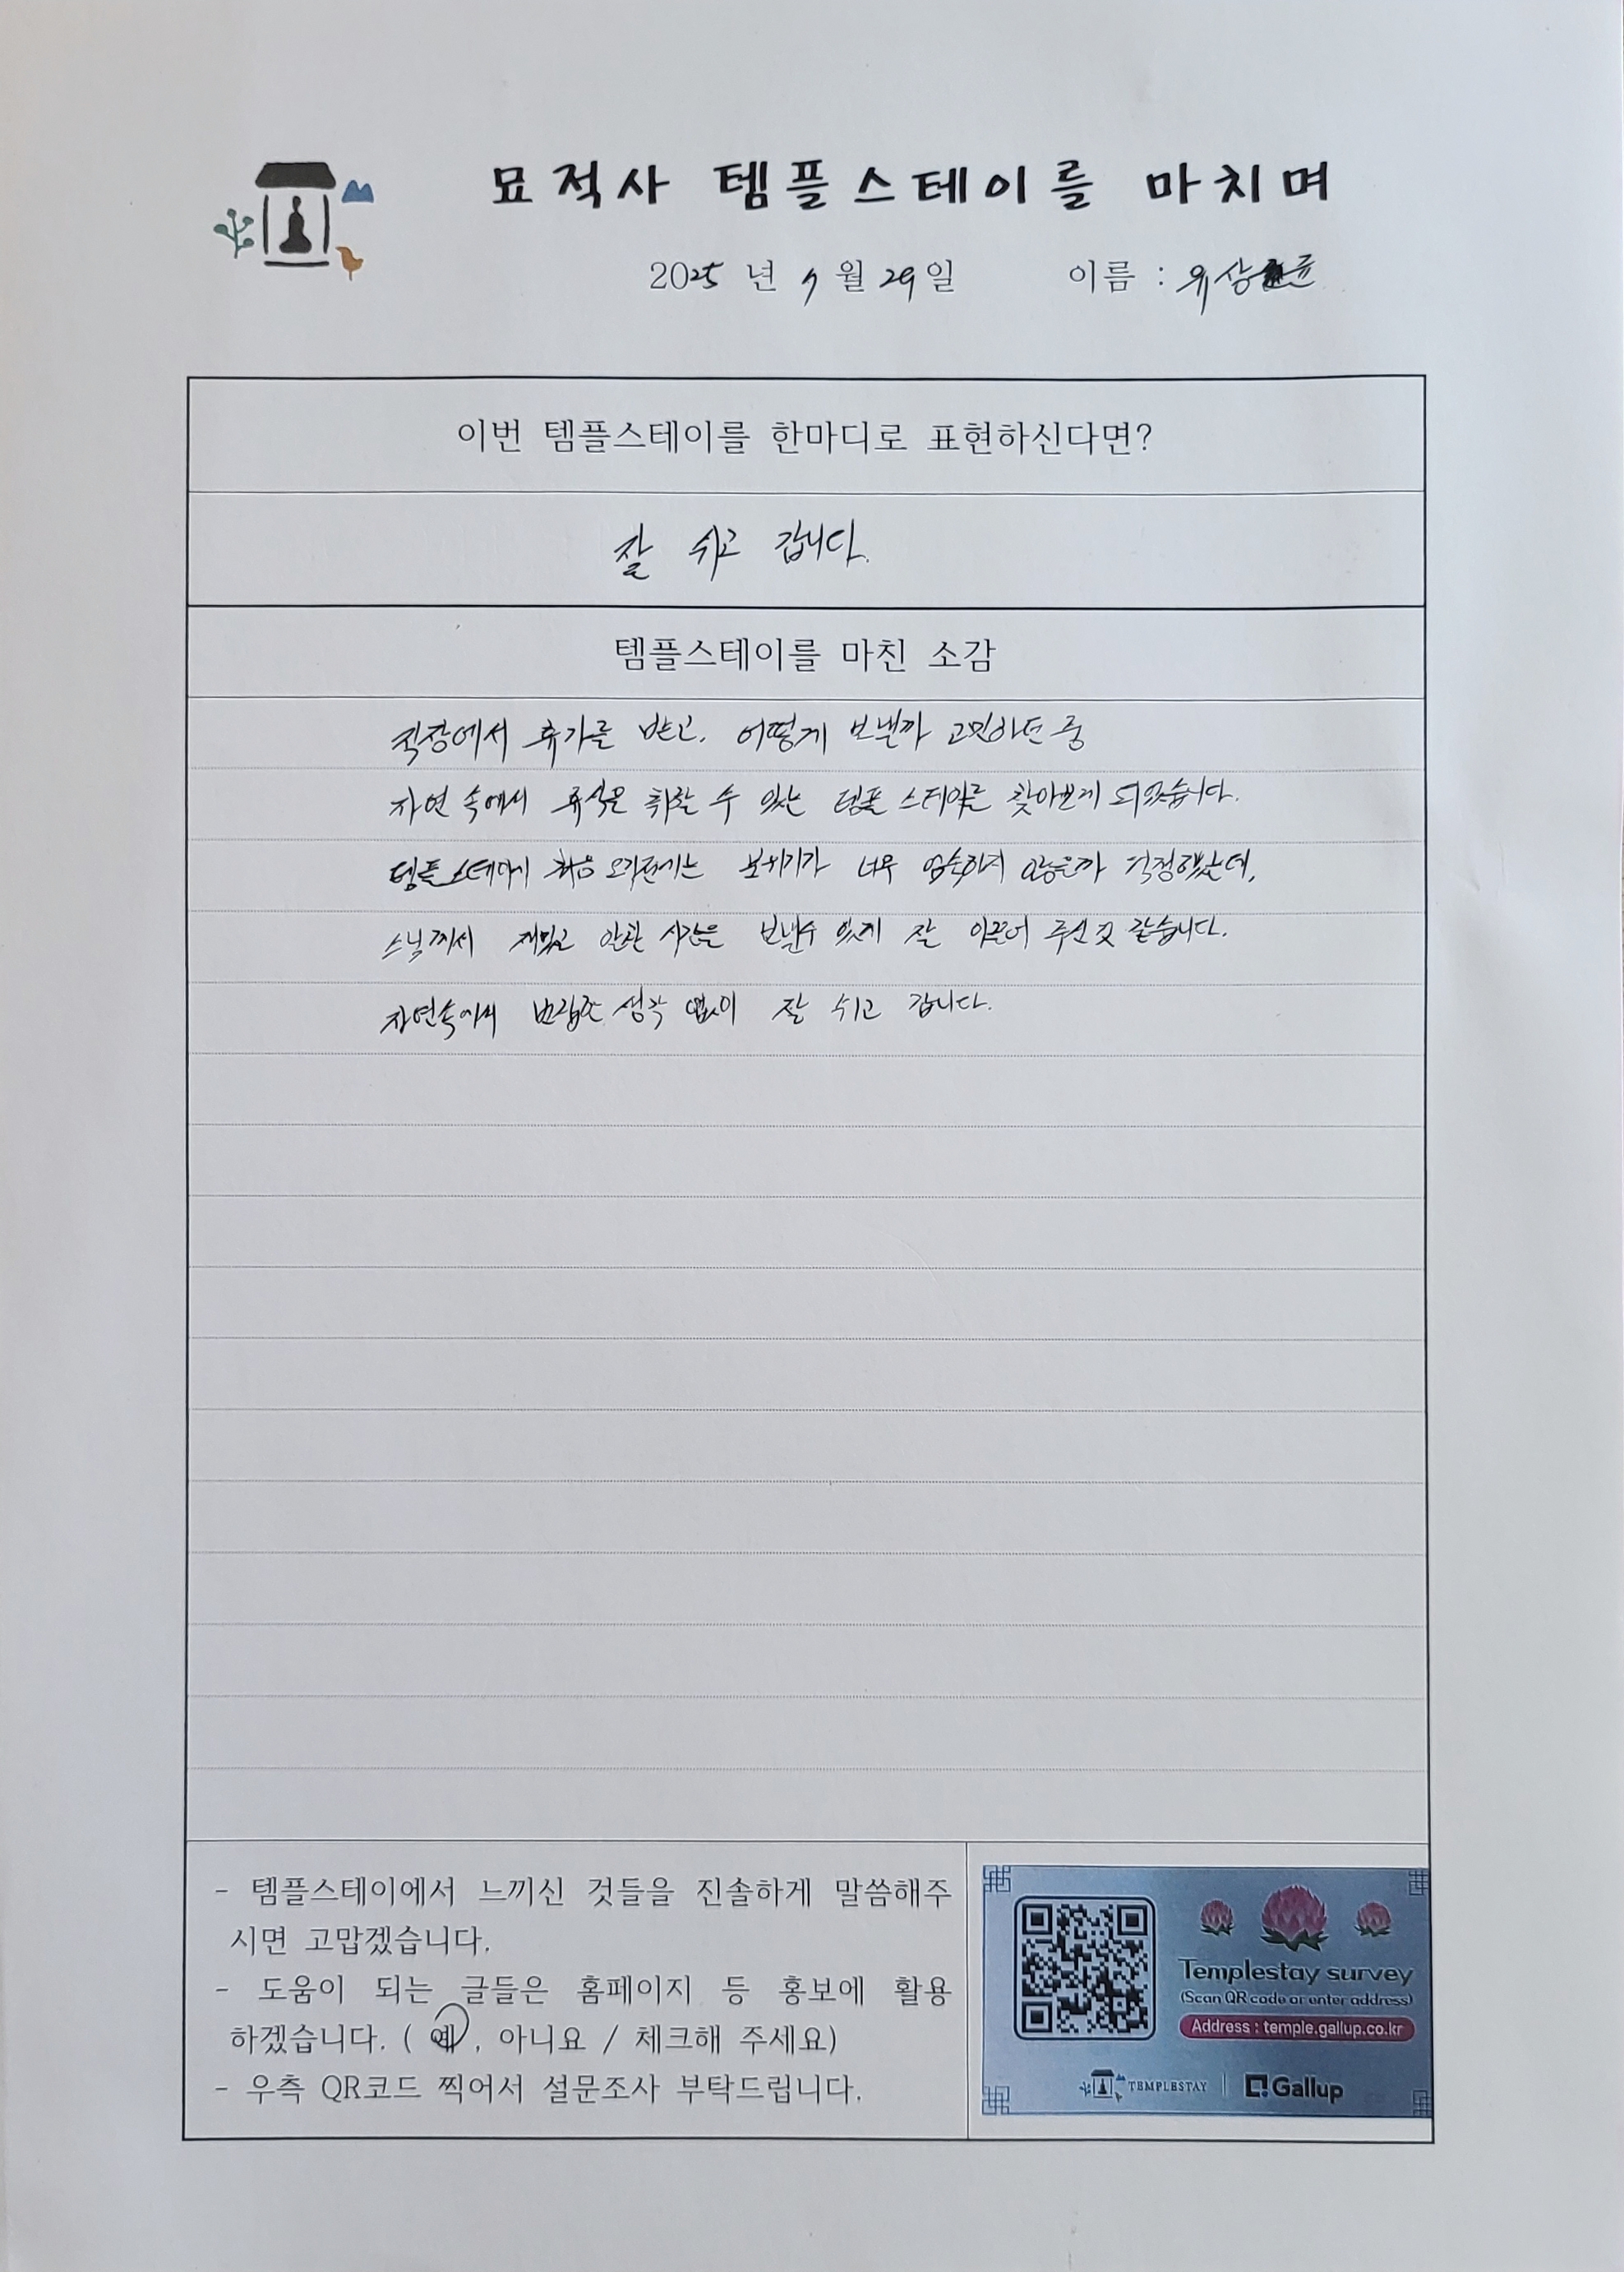 묘적사 템플스테이를 마치며
2025 년 7 월 29 일 이름 : 유상윤
이번 템플스테이를 한마디로 표현하신다면?
잘 쉬고 갑니다.
템플스테이를 마친 소감
직장에서 휴가를 받고, 어떻게 보낼까 고민하던 중
자연 속에서 휴식을 취할 수 있는 템플 스테이를 찾아보게 되었습니다.
템플스테이 처음 오기전에는 분위기가 너무 엄숙하지 않을까 걱정했는데,
스님께서 재밌고 시간을 보낼수 있게 잘 이끌어 주신 것 같습니다.
자연속에서 번잡한 생각 없이 잘 쉬고 갑니다.
- 템플스테이에서 느끼신 것들을 진솔하게 말씀해주
시면 고맙겠습니다.
- 도움이 되는 글들은 홈페이지 등 홍보에 활용
하겠습니다. ( 예 , 아니요 / 체크해 주세요)
- 우측 QR코드 찍어서 설문조사 부탁드립니다.
Templestay survey
(Scan QR code or enter address)
Address : temple.gallup.co.kr
TEMPLESTAY Gallup